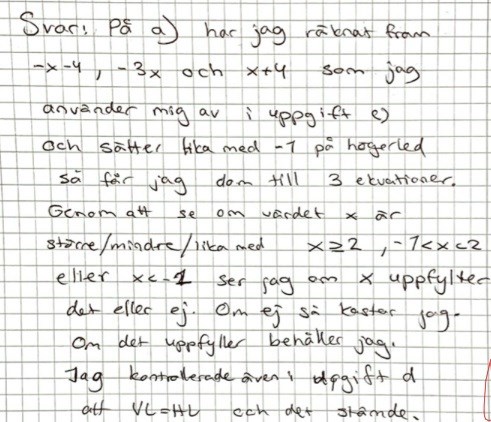 Svar: På a) har jag räknat fram
-x-4, -3x och x+4 som jag
använder mig av i uppgift e)
och sätter lika med -1 på högerled
så får jag dom till 3 ekvationer.
Genom att se om värdet x är
större/mindre/lika med x≥2, -1<x<2
eller x<-1 ser jag om x uppfyller
det eller ej. Om ej så kastar jag.
Om det uppfyller behåller jag.
Jag kontrollerade även i uppgift d
att VL=HL och det stämde.